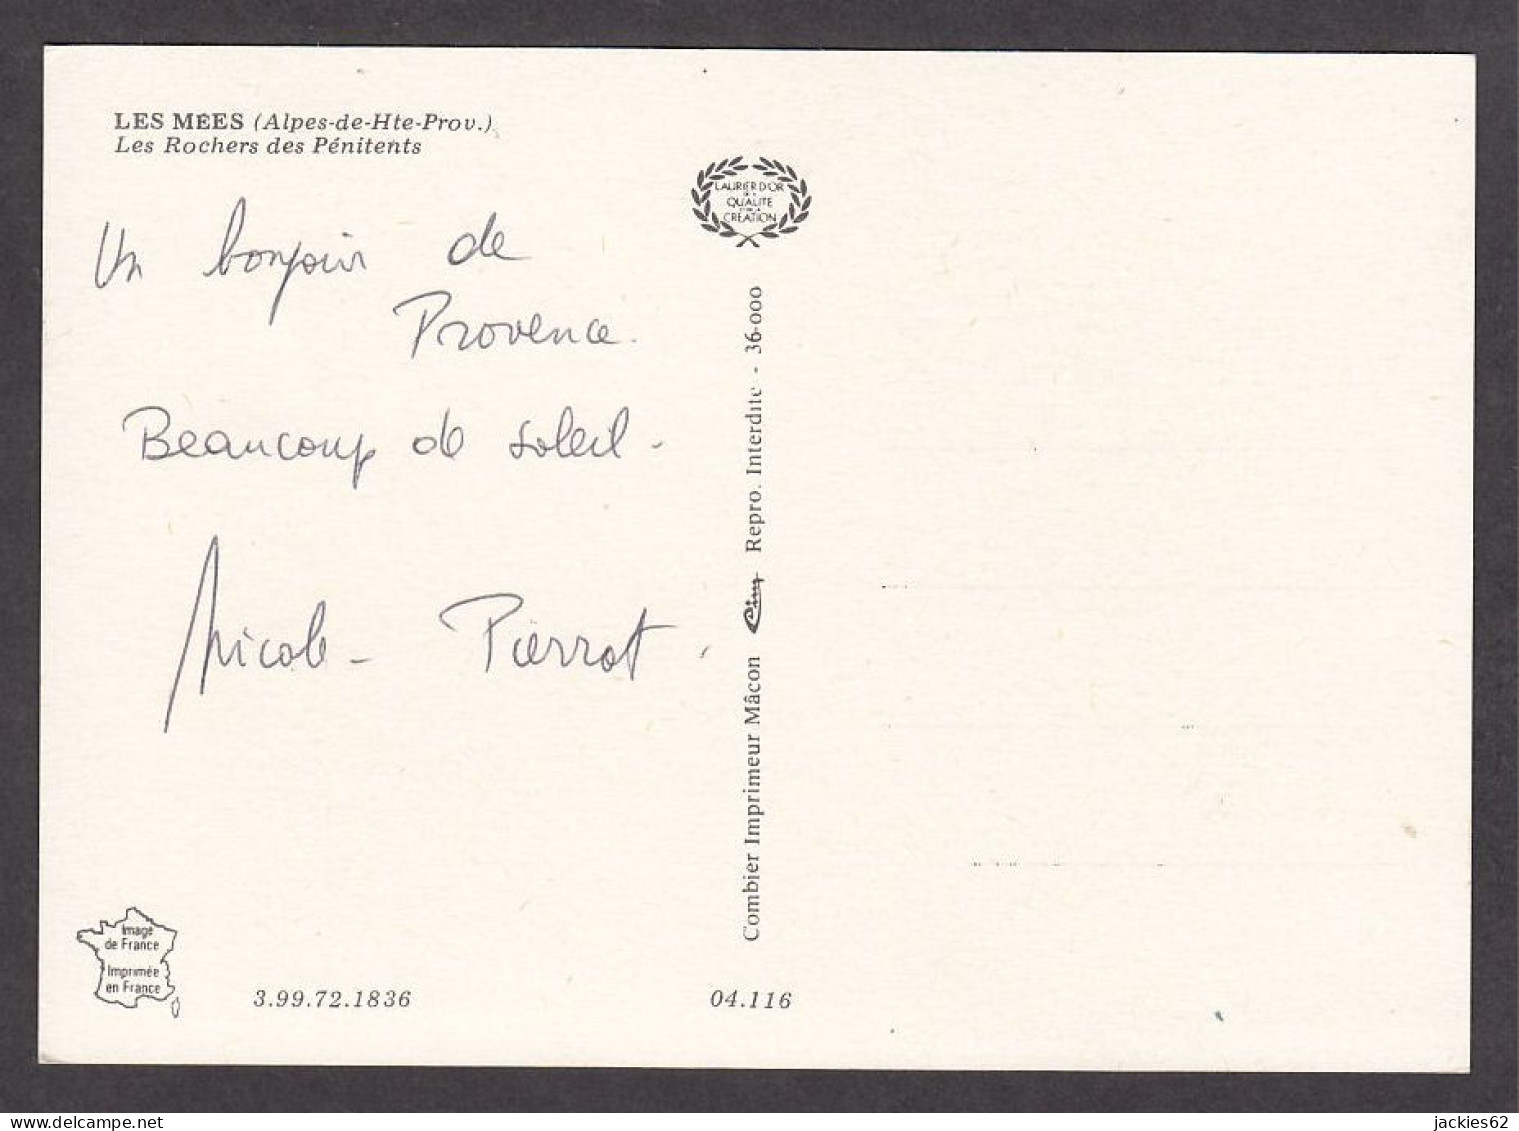 LES MÉES (Alpes-de-Hte-Prov.)
Les Rochers des Pénitents
Un bonjour de
Provence.
Beaucoup de soleil -
Nicole - Pierrot.
LAURIER D'OR
DE LA
QUALITE
ET DE LA
CREATION
Combier Imprimeur Mâcon Cim Repro. Interdite - 36-000
Image
de France
Imprimée
en France
3.99.72.1836
04.116
delcampe.net
jackies62